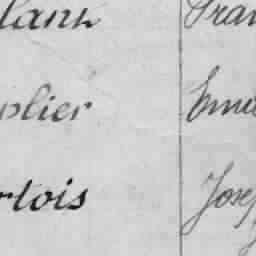 lank Fran
plier Emil
rtois Josep